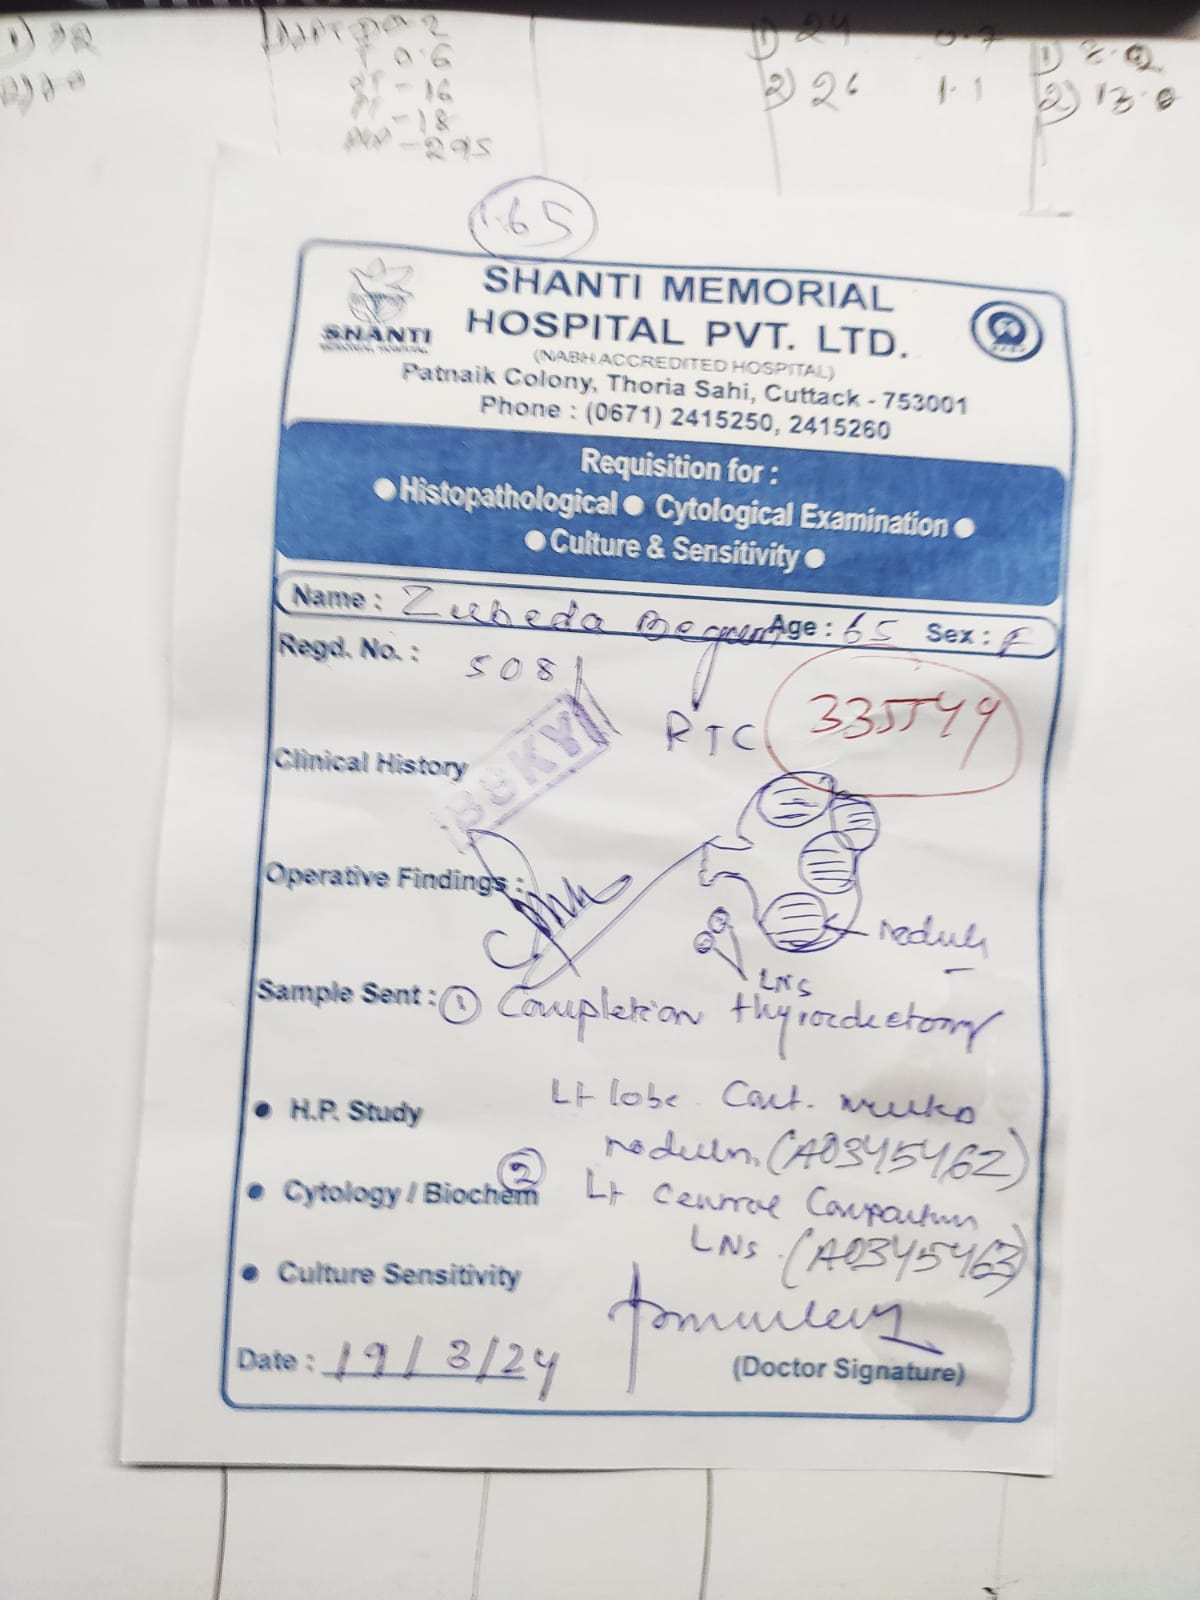 1) 72
0.6
- 16
- 18
- 295
1) 24 0.7
2) 26 1.1
1) 2.0
2) 13.0
1.65
SHANTI
MEMORIAL HOSPITAL
SHANTI MEMORIAL
HOSPITAL PVT. LTD.
(NABH ACCREDITED HOSPITAL)
Patnaik Colony, Thoria Sahi, Cuttack - 753001
Phone : (0671) 2415250, 2415260
Requisition for :
● Histopathological ● Cytological Examination ●
● Culture & Sensitivity ●
Name : Zubeda Begum Age : 65 Sex : F
Regd. No. : 5081
PTC 335549
BSKY
Clinical History
Operative Findings :
nodule
LNS
Sample Sent : ① Completion thyroidectomy
• H.P. Study Lt lobe Cont. multi
nodules (A0345462)
• Cytology / Biochem ② Lt Central Compartment
LNs. (A0345463)
• Culture Sensitivity
Date : 19/3/24
(Doctor Signature)